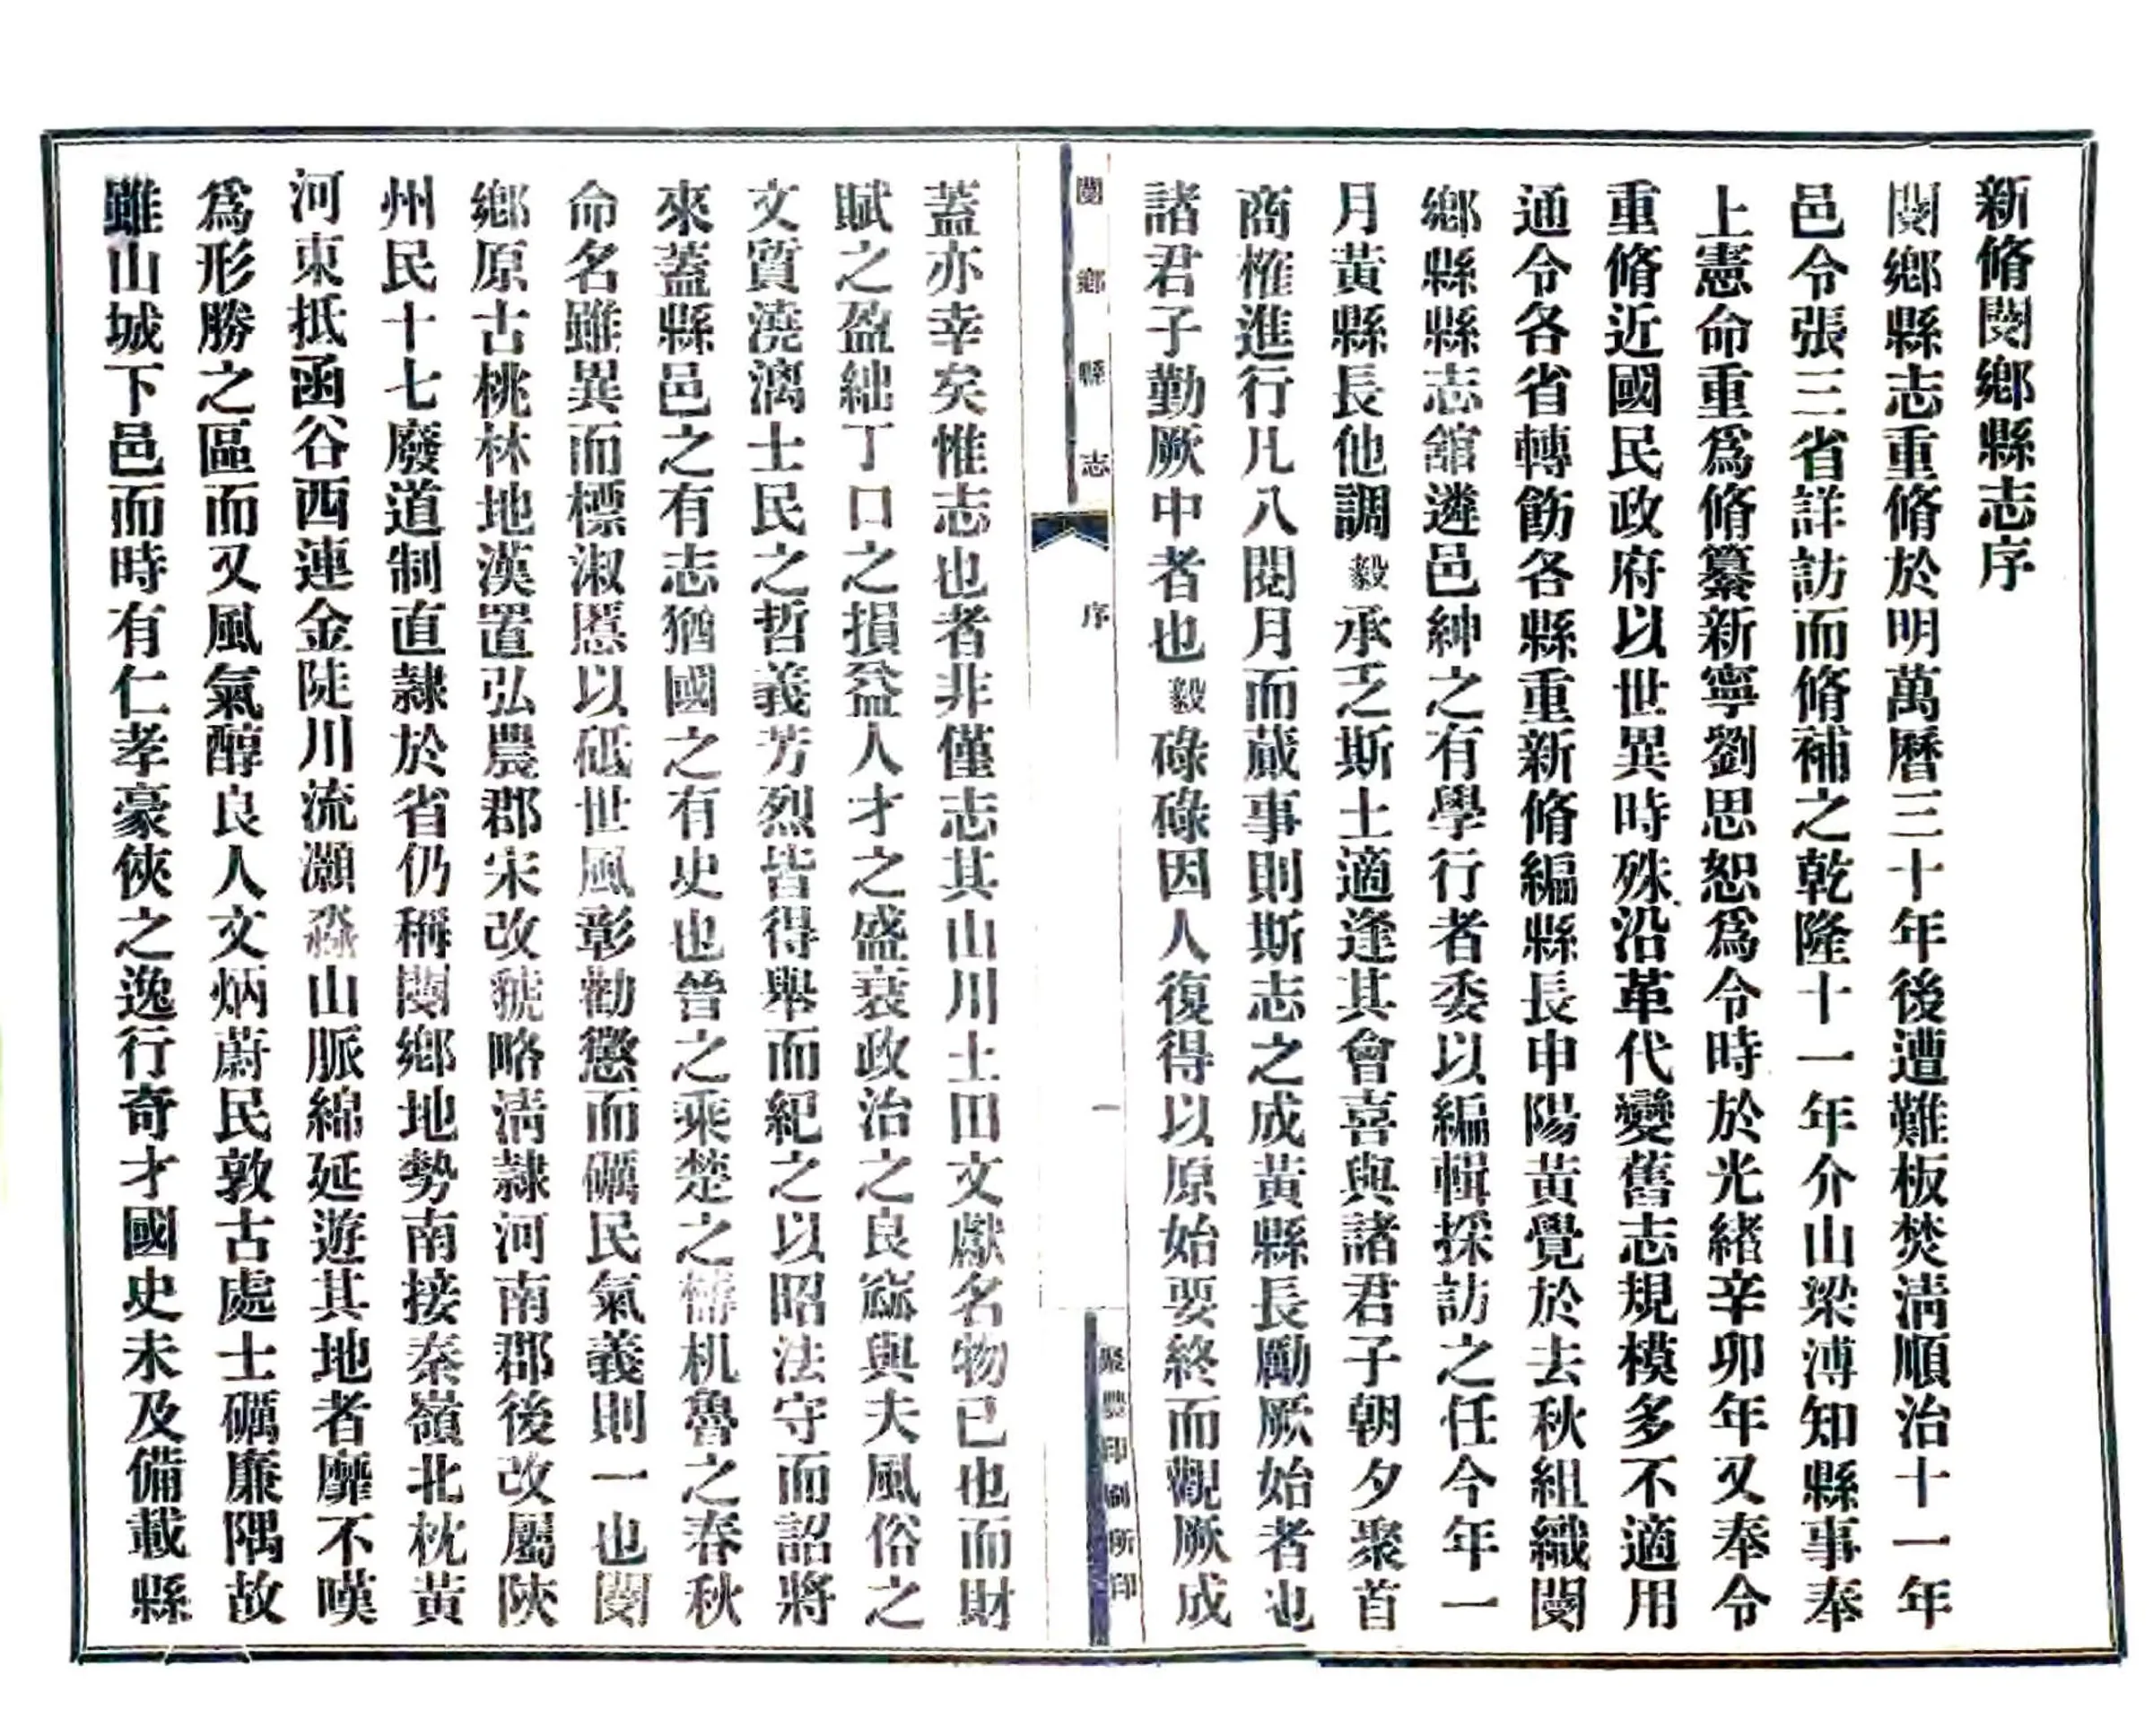 新脩閿鄉縣志序
閿鄉縣志重脩於明萬曆三十年後遭難板焚清順治十一年
邑令張三省詳訪而脩補之乾隆十一年介山梁溥知縣事奉
上憲命重爲脩纂新寧劉思恕爲令時於光緒辛卯年又奉令
重脩近國民政府以世異時殊沿革代變舊志規模多不適用
通令各省轉飭各縣重新脩編縣長申陽黃覺於去秋組織閿
鄉縣縣志舘遴邑紳之有學行者委以編輯採訪之任今年一
月黃縣長他調毅承乏斯土適逢其會喜與諸君子朝夕聚首
商榷進行凡八閱月而蕆事則斯志之成黃縣長勵厥始者也
諸君子勤厥中者也毅碌碌因人復得以原始要終而觀厥成
閿鄉縣志
序
一
聚豐印刷所印
蓋亦幸矣惟志也者非僅志其山川土田文獻名物已也而財
賦之盈絀丁口之損益人才之盛衰政治之良窳與夫風俗之
文質澆漓士民之哲義芳烈皆得舉而紀之以昭法守而詔將
來蓋縣邑之有志猶國之有史也晉之乘楚之檮杌魯之春秋
命名雖異而標淑慝以砥世風彰勸懲而礪民氣義則一也閿
鄉原古桃林地漢置弘農郡宋改虢略清隸河南郡後改屬陝
州民十七廢道制直隸於省仍稱閿鄉地勢南接秦嶺北枕黃
河東抵函谷西連金陡川流灝淼山脈綿延遊其地者靡不嘆
爲形勝之區而又風氣醇良人文炳蔚民敦古處士礪廉隅故
雖山城下邑而時有仁孝豪俠之逸行奇才國史未及備載縣